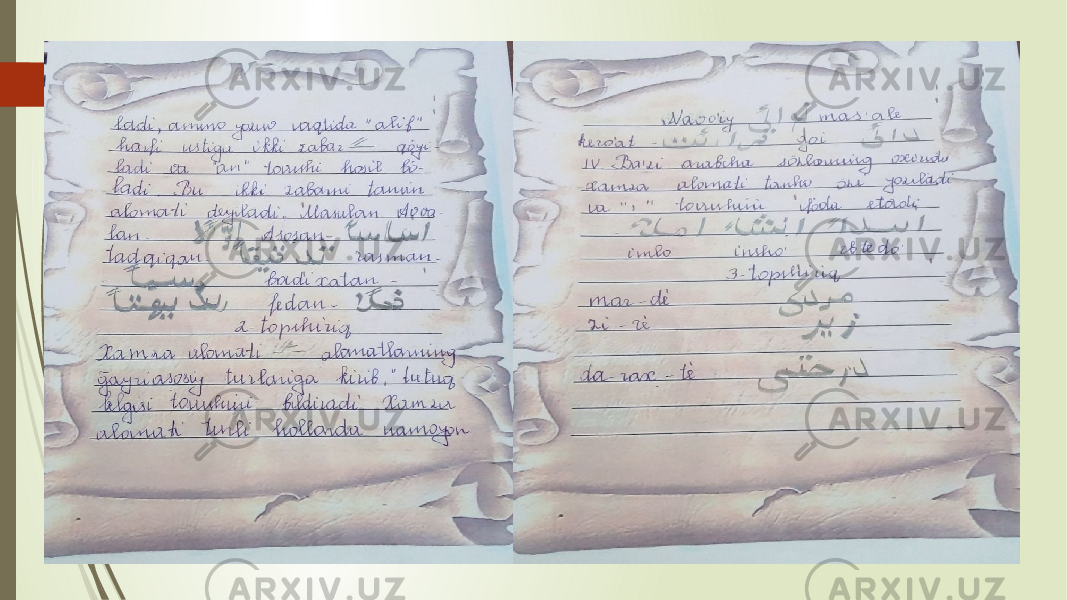 ladi, ammo yozuv vaqtida "alif"
harfi ustiga ikki zabar qo'yi-
ladi va "an" tovushi hosil bo-
ladi. Bu ikki zabarni tanvin
alomati deyiladi. Masalan Avva-
lan - اوّلاً Asosan - اساساً
Tadqiqan تدقیقاً rasman -
رسماً badixatan -
fedan -
2-topshiriq
Xamza alomati alomatlarning
g'ayriasosiy turlariga kirib, "tutuq
belgisi tovushini bildiradi. Xamza
alomati turli hollarda namoyon
Navoiy mas'ale
kero'at - قرائت
IV. Ba'zi arabcha so'zlarning oxirida
xamza alomati tanho o'zi yoziladi
va "," tovushini ifoda etadi
املاء انشاء ابتداء
imlo insho ebtedo
3-topshiriq
mar-dē مردی
zi-rē زیر
da-rax-tē درختی
ARXIV.UZ
ARXIV.UZ
ARXIV.UZ
ARXIV.UZ
ARXIV.UZ
ARXIV.UZ
ARXIV.UZ
ARXIV.UZ